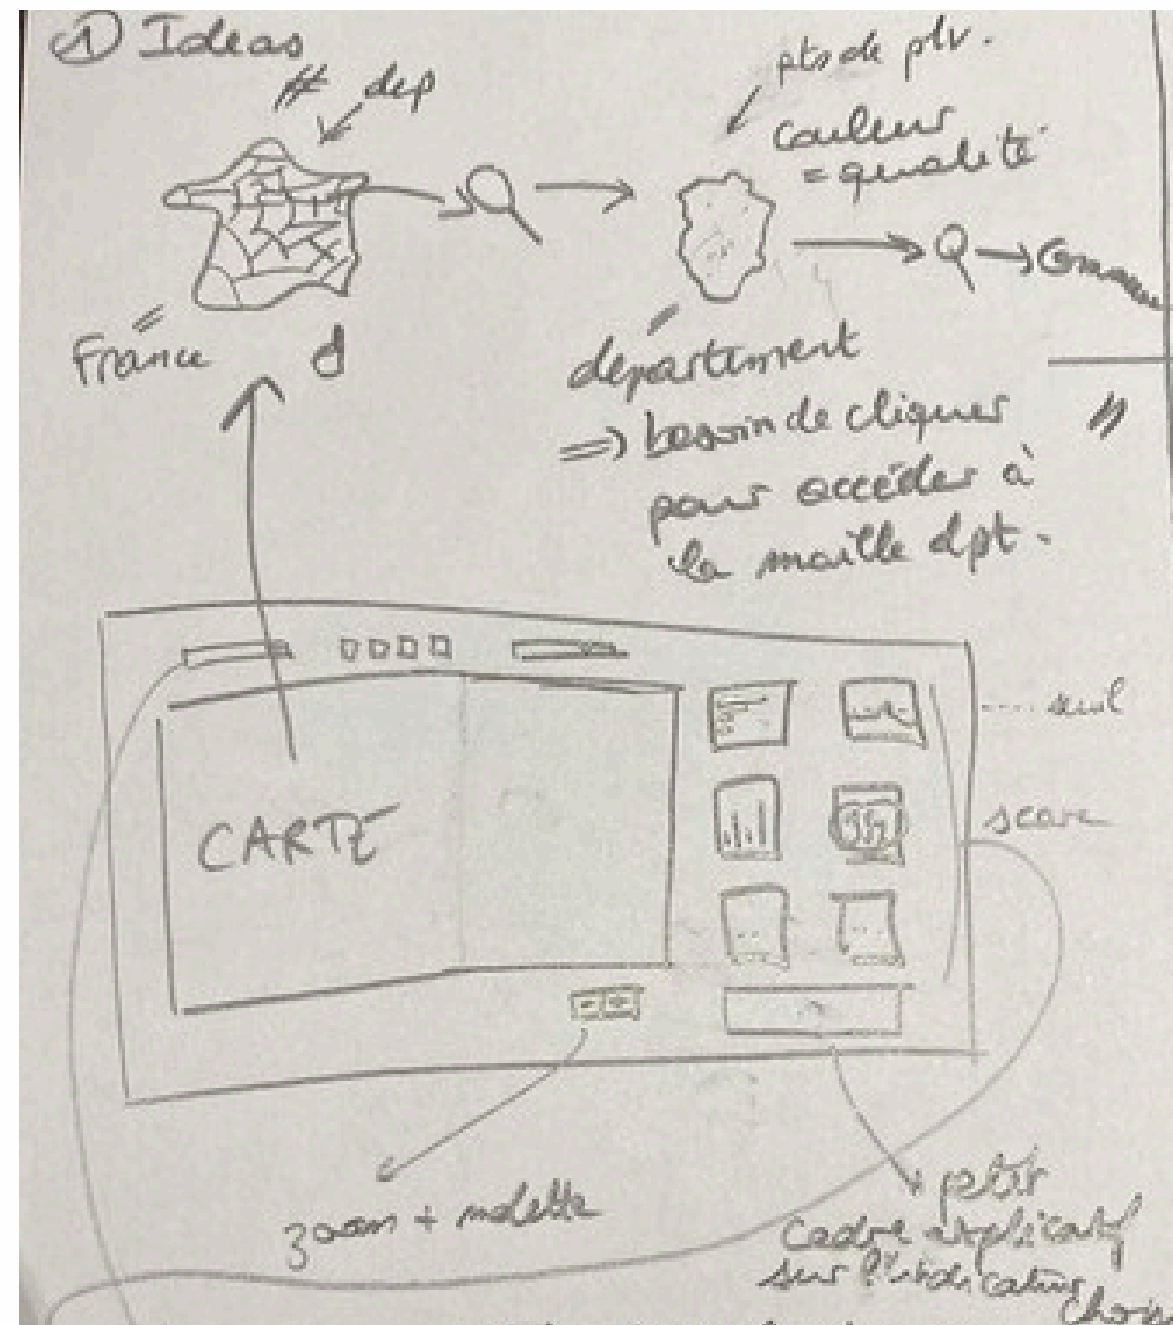 ① Ideas
# dep
pts de plv.
couleur
= qualité
France
département
=> besoin de cliquer
pour accéder à
la maille dpt.
CARTE
seuil
score
zoom + molette
+ petit
cadre explicatif
sur l'indicateur
choisi